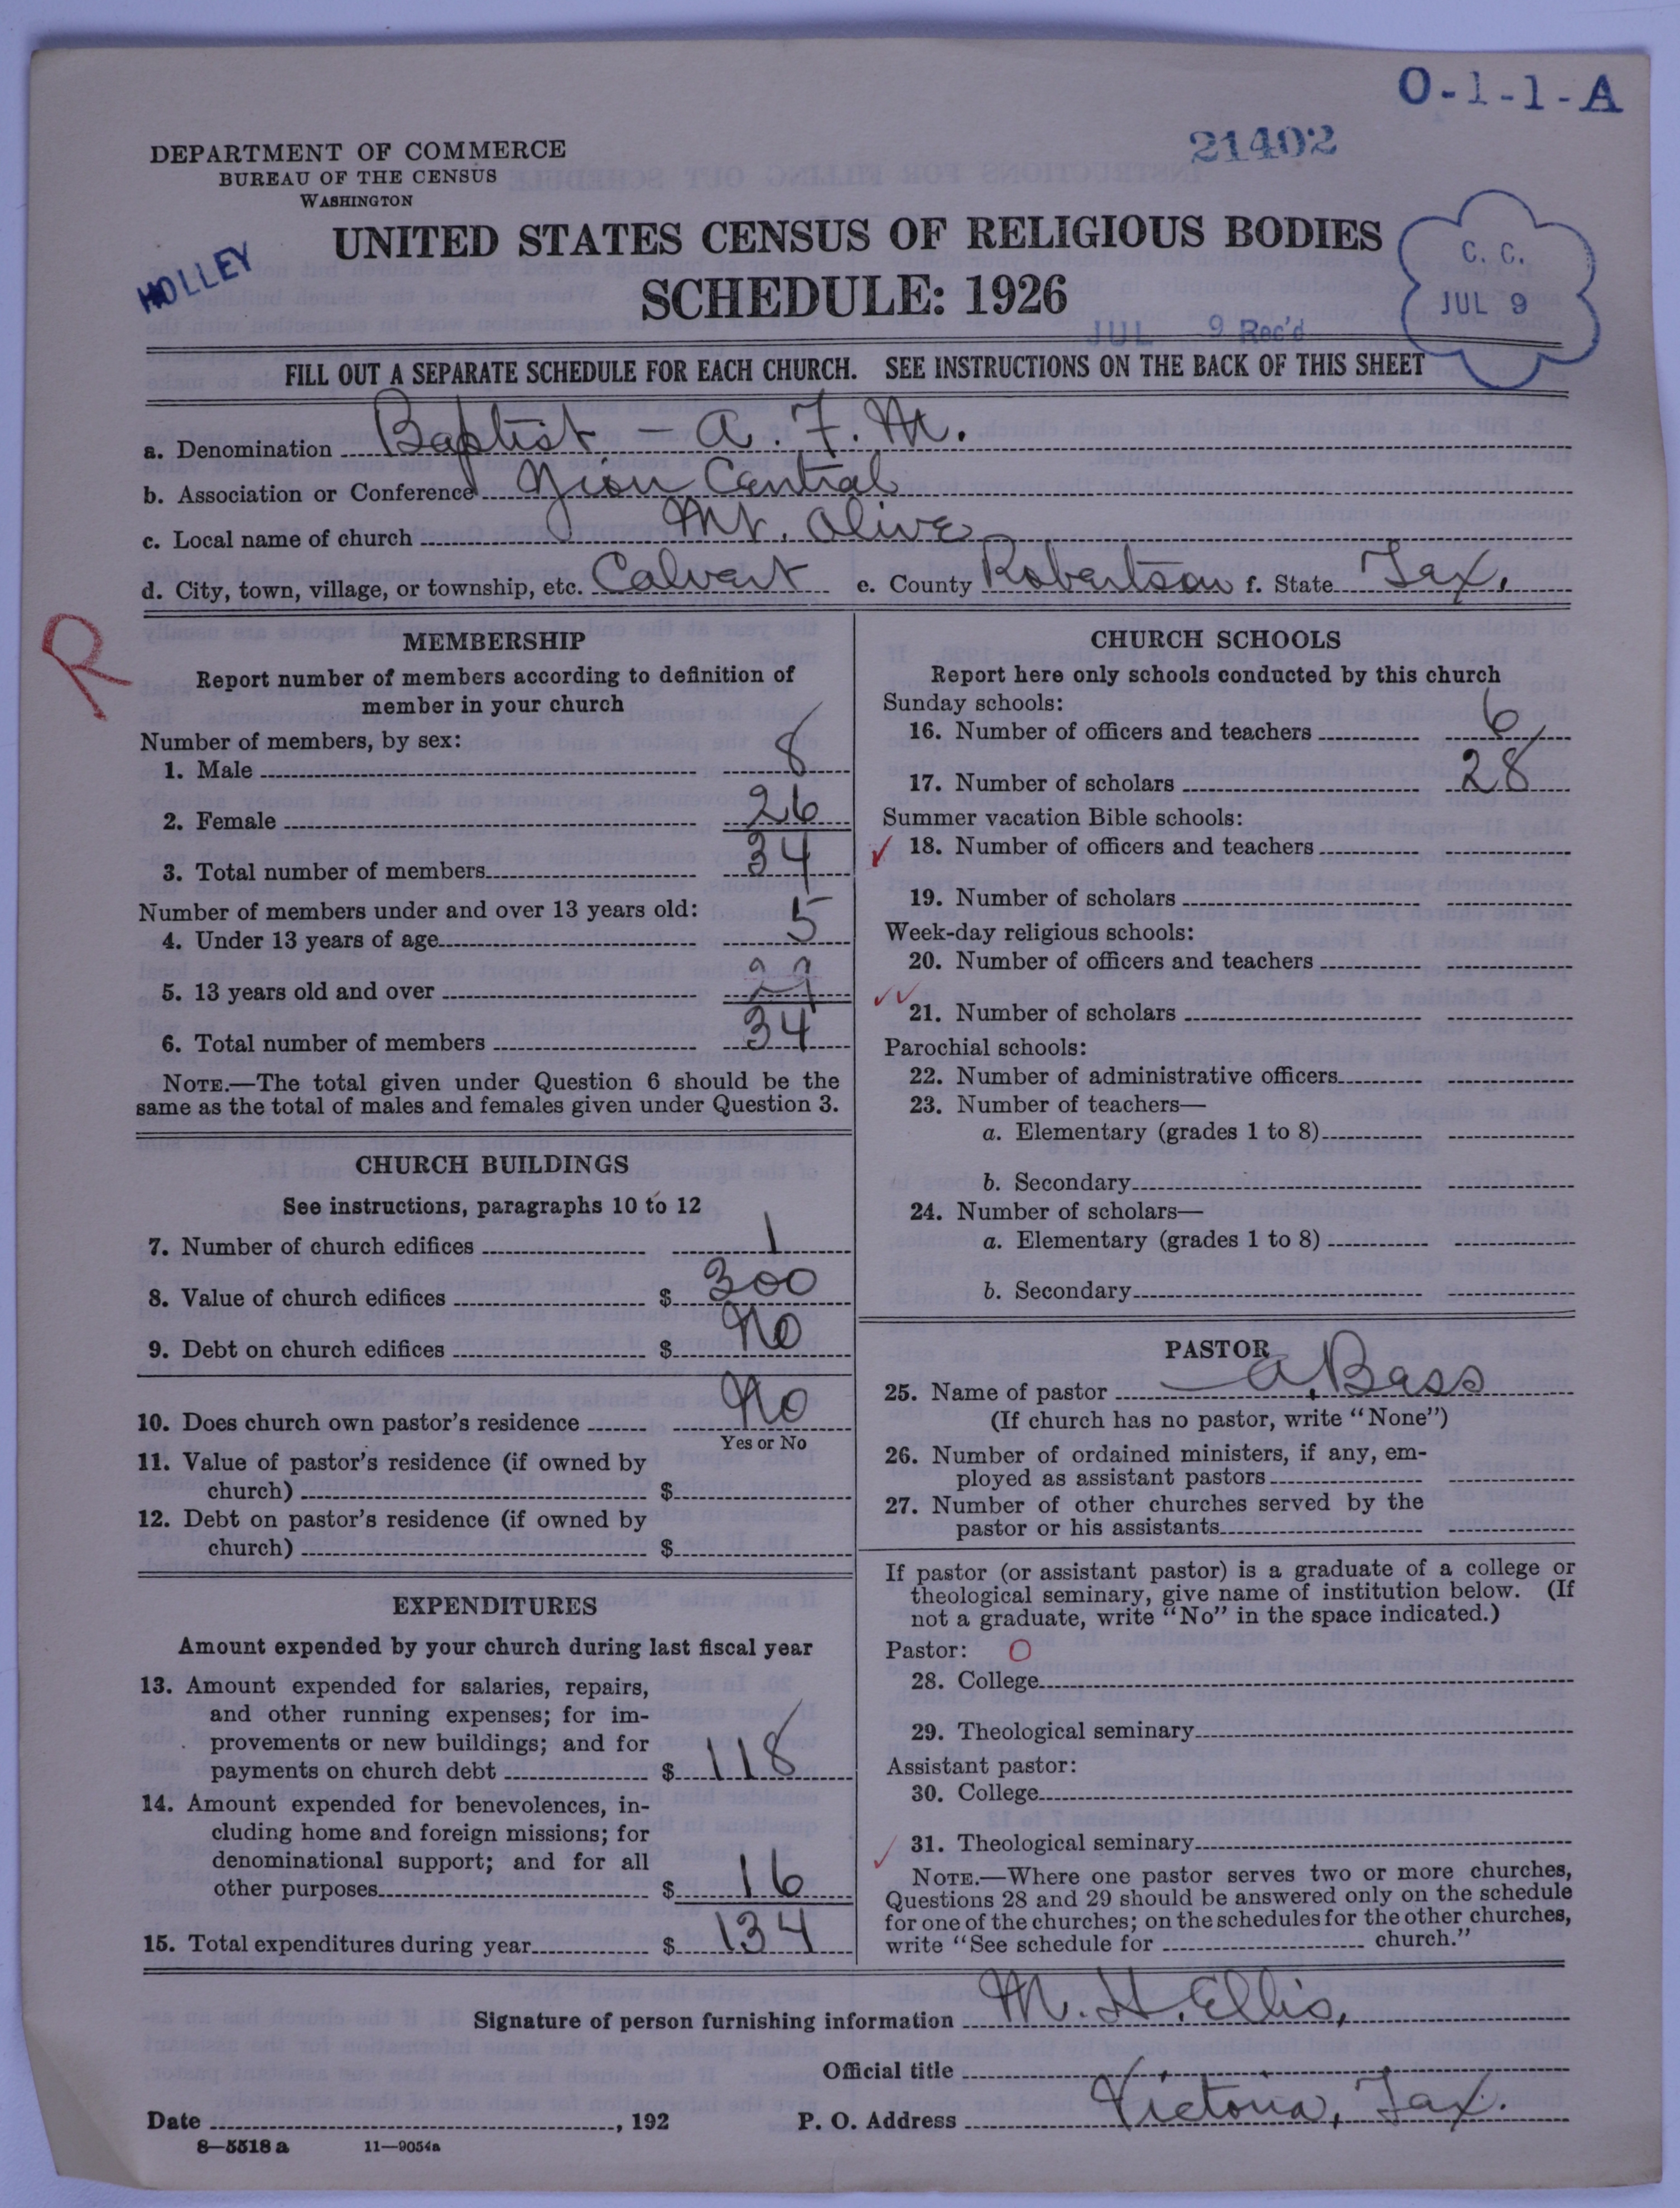 O-1-1-A
21402
DEPARTMENT OF COMMERCE
BUREAU OF THE CENSUS
WASHINGTON
HOLLEY
UNITED STATES CENSUS OF RELIGIOUS BODIES
SCHEDULE: 1926
C. C.
JUL 9
JUL 9 Rec'd
FILL OUT A SEPARATE SCHEDULE FOR EACH CHURCH. SEE INSTRUCTIONS ON THE BACK OF THIS SHEET
a. Denomination Baptist - A. F. M.
b. Association or Conference Zion Central
c. Local name of church Mt. Olive
d. City, town, village, or township, etc. Calvert e. County Robertson f. State Tex.
R
MEMBERSHIP
Report number of members according to definition of
member in your church
Number of members, by sex:
1. Male 8
2. Female 26
3. Total number of members 34
Number of members under and over 13 years old:
4. Under 13 years of age 5
5. 13 years old and over 29
6. Total number of members 34
NOTE.—The total given under Question 6 should be the
same as the total of males and females given under Question 3.
CHURCH BUILDINGS
See instructions, paragraphs 10 to 12
7. Number of church edifices 1
8. Value of church edifices $ 300
9. Debt on church edifices $ No
10. Does church own pastor's residence No
Yes or No
11. Value of pastor's residence (if owned by
church) $
12. Debt on pastor's residence (if owned by
church) $
EXPENDITURES
Amount expended by your church during last fiscal year
13. Amount expended for salaries, repairs,
and other running expenses; for im-
provements or new buildings; and for
payments on church debt $ 118
14. Amount expended for benevolences, in-
cluding home and foreign missions; for
denominational support; and for all
other purposes $ 16
15. Total expenditures during year $ 134
CHURCH SCHOOLS
Report here only schools conducted by this church
Sunday schools:
16. Number of officers and teachers 6
17. Number of scholars 28
Summer vacation Bible schools:
18. Number of officers and teachers
19. Number of scholars
Week-day religious schools:
20. Number of officers and teachers
21. Number of scholars
Parochial schools:
22. Number of administrative officers
23. Number of teachers—
a. Elementary (grades 1 to 8)
b. Secondary
24. Number of scholars—
a. Elementary (grades 1 to 8)
b. Secondary
PASTOR
25. Name of pastor A. Bass
(If church has no pastor, write "None")
26. Number of ordained ministers, if any, em-
ployed as assistant pastors
27. Number of other churches served by the
pastor or his assistants
If pastor (or assistant pastor) is a graduate of a college or
theological seminary, give name of institution below. (If
not a graduate, write "No" in the space indicated.)
Pastor: O
28. College
29. Theological seminary
Assistant pastor:
30. College
31. Theological seminary
NOTE.—Where one pastor serves two or more churches,
Questions 28 and 29 should be answered only on the schedule
for one of the churches; on the schedules for the other churches,
write "See schedule for church."
Signature of person furnishing information M. H. Ellis,
Official title
Date , 192 P. O. Address Victoria, Tex.
8—5518 a 11—9054a